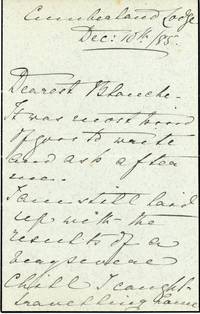 Cumberland Lodge
Dec: 10th/85.
Dearest Blanche.
It was most kind
of you to write
and ask after
me..
I am still laid
up with the
results of a
very severe
chill I caught
travelling home